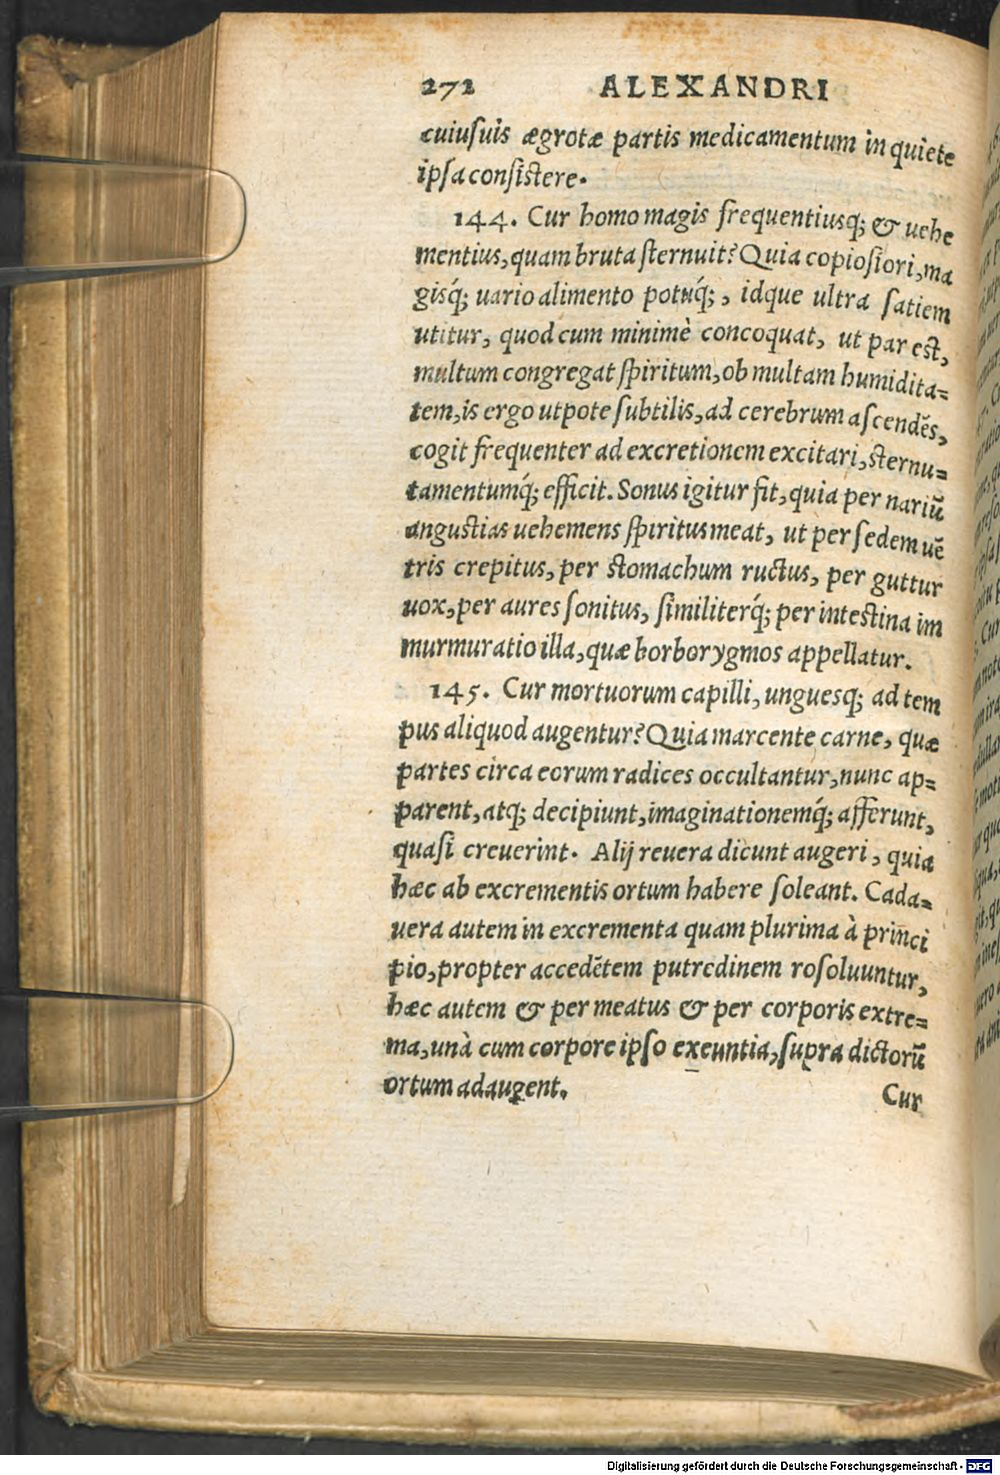 272 ALEXANDRI
cuiusuis ægrotæ partis medicamentum in quiete
ipsa consistere.
144. Cur homo magis frequentiusq; & uehe
mentius, quam bruta sternuit? Quia copiosiori, ma
gisq́; uario alimento potuq́;, idque ultra satiem
utitur, quod cum minimè concoquat, ut par est,
multum congregat spiritum, ob multam humidita=
tem, is ergo utpote subtilis, ad cerebrum ascendẽs,
cogit frequenter ad excretionem excitari, sternu=
tamentumq́; efficit. Sonus igitur fit, quia per nariũ
angustias uehemens spiritus meat, ut per sedem uẽ
tris crepitus, per stomachum ructus, per guttur
uox, per aures sonitus, similiterq́; per intestina im
murmuratio illa, quæ borborygmos appellatur.
145. Cur mortuorum capilli, unguesq; ad tem
pus aliquod augentur? Quia marcente carne, quæ
partes circa eorum radices occultantur, nunc ap=
parent, atq; decipiunt, imaginationemq́; afferunt,
quasi creuerint. Alij reuera dicunt augeri, quia
hæc ab excrementis ortum habere soleant. Cada=
uera autem in excrementa quam plurima à princi
pio, propter accedẽtem putredinem rosoluuntur,
hæc autem & per meatus & per corporis extre=
ma, unà cum corpore ipso exeuntia, supra dictorũ
ortum adaugent. Cur
Digitalisierung gefördert durch die Deutsche Forschungsgemeinschaft - DFG